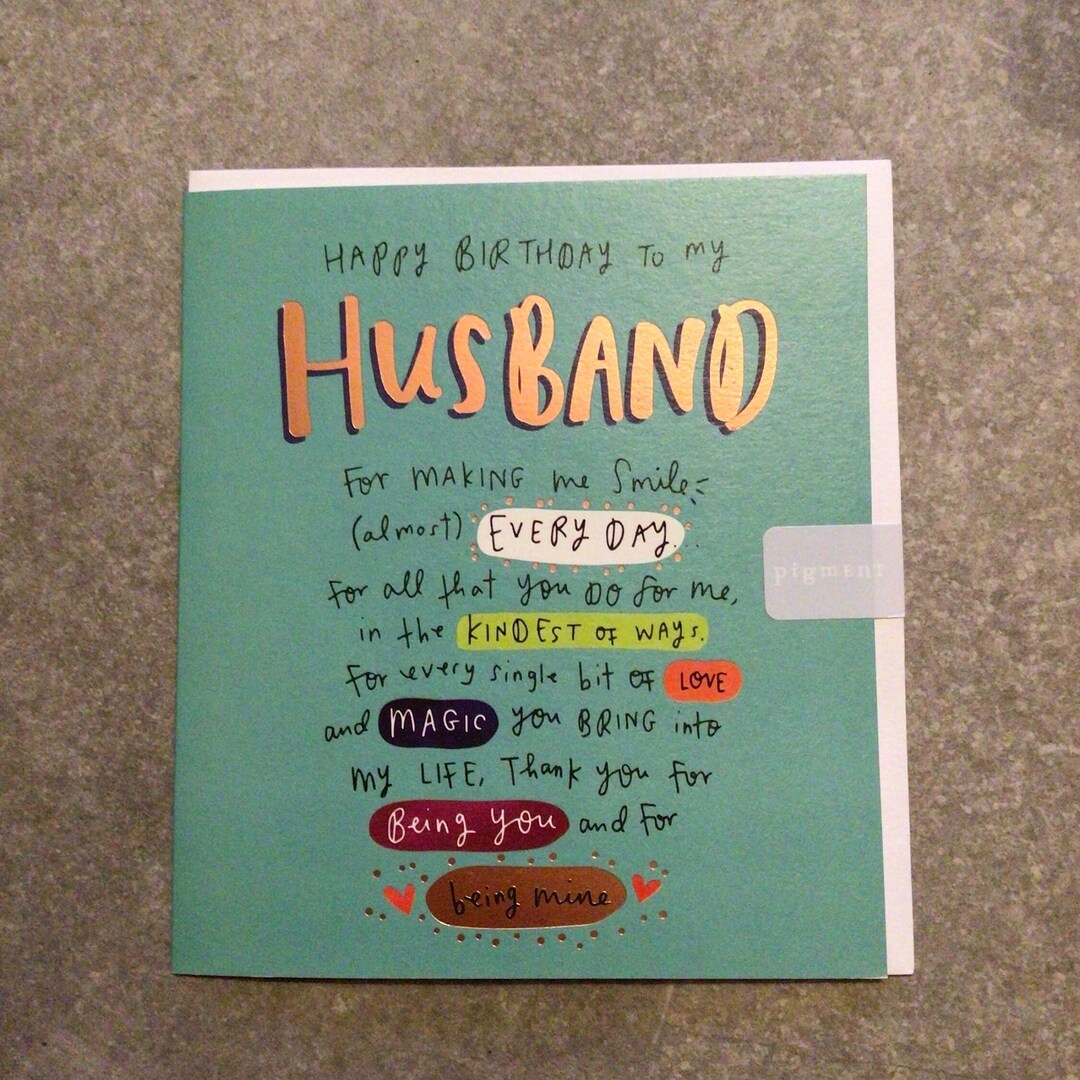 HAPPY BIRTHDAY TO my
HUSBAND
For MAKING me Smile
(almost) EVERY DAY...
For all that you DO for me,
in the KINDEST OF WAYS.
For every single bit OF LOVE
and MAGIC you BRING into
my LIFE, Thank you for
Being you and For
being mine
pigment